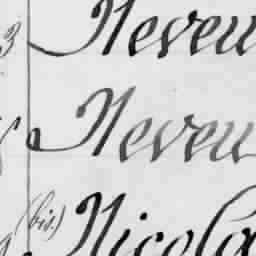 3 Neveu
Neveu
(bis.) Nicola